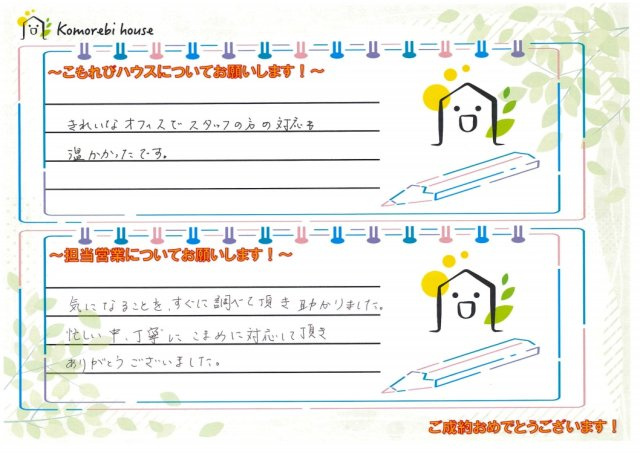 Komorebi house
～こもれびハウスについてお願いします！～
きれいなオフィスでスタッフの方の対応も
温かかったです。
～担当営業についてお願いします！～
気になることを、すぐに調べて頂き助かりました。
忙しい中、丁寧にこまめに対応して頂き
ありがとうございました。
ご成約おめでとうございます！